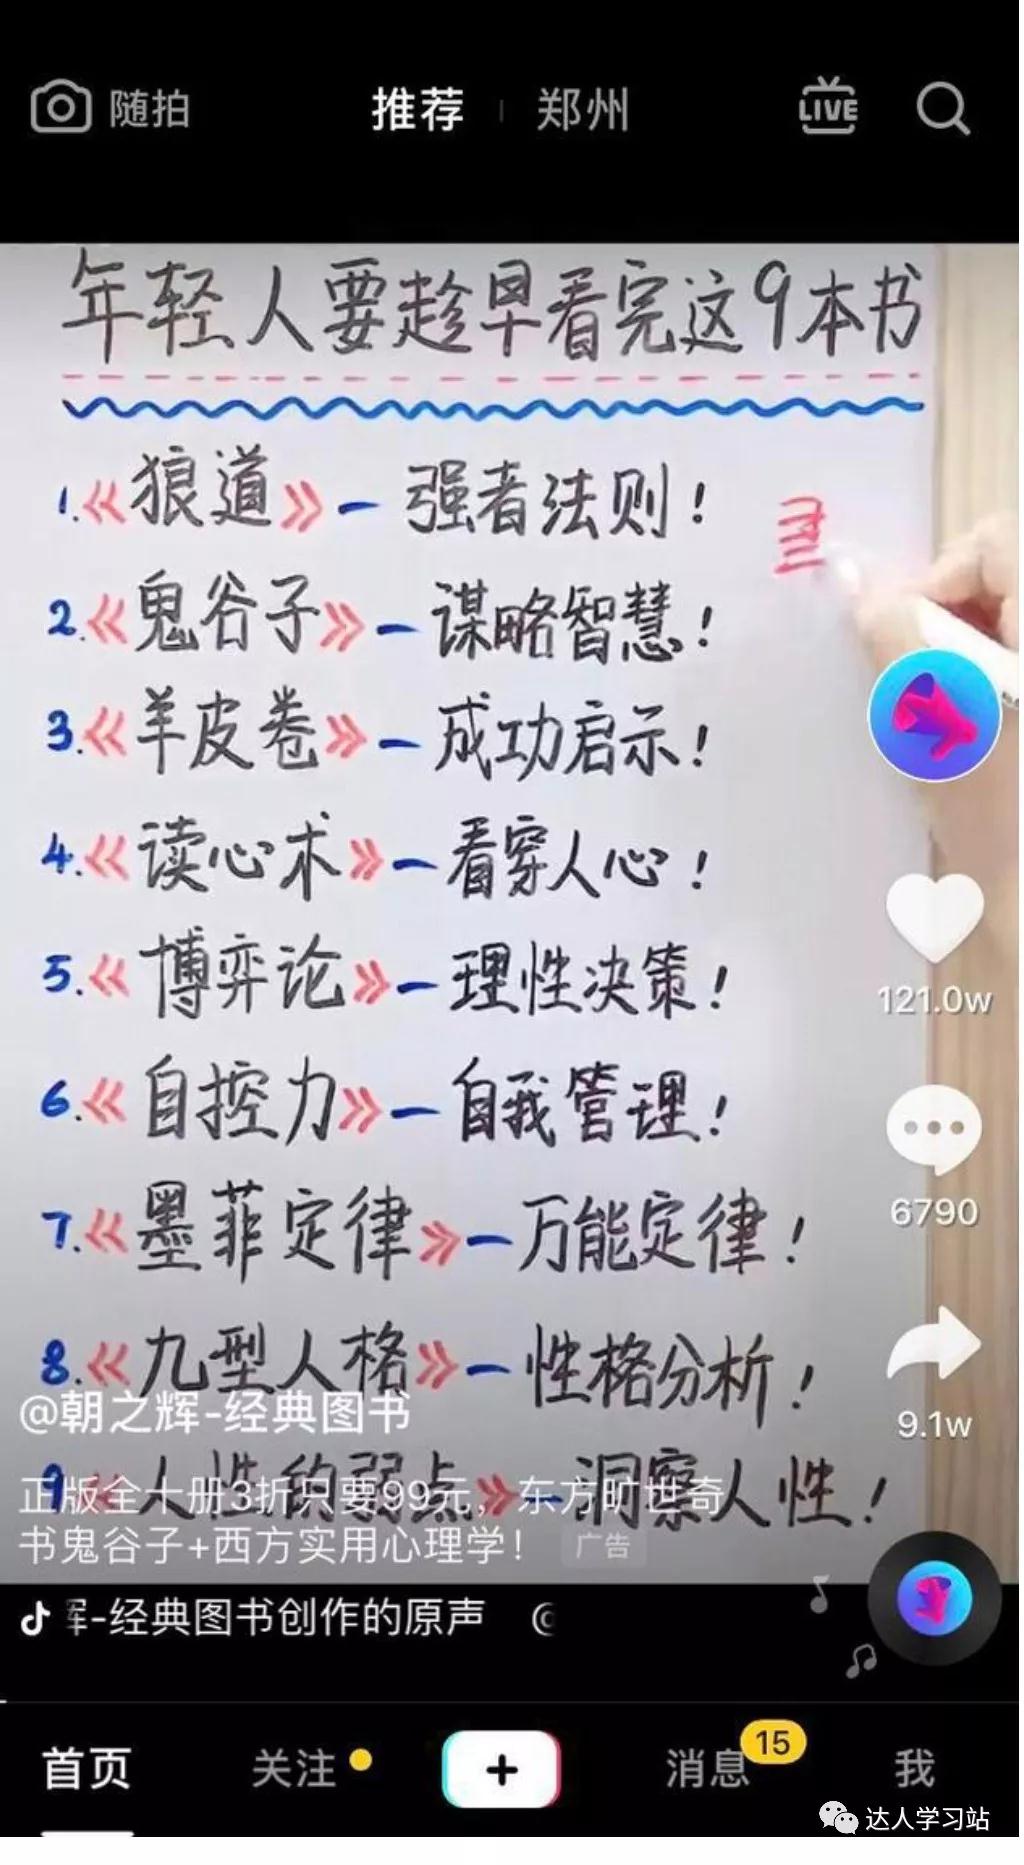 随拍 推荐 郑州 LIVE
年轻人要趁早看完这9本书
1.《狼道》—强者法则！
2.《鬼谷子》—谋略智慧！
3.《羊皮卷》—成功启示！
4.《读心术》—看穿人心！
5.《博弈论》—理性决策！
121.0w
6.《自控力》—自我管理！
6790
7.《墨菲定律》—万能定律！
8.《九型人格》—性格分析！
9.1w
@朝之辉-经典图书
9.《人性的弱点》—洞察人性！
正版全十册3折只要99元，东方旷世奇
书鬼谷子+西方实用心理学！ 广告
辉-经典图书创作的原声 @
首页 关注 + 消息 15 我
达人学习站